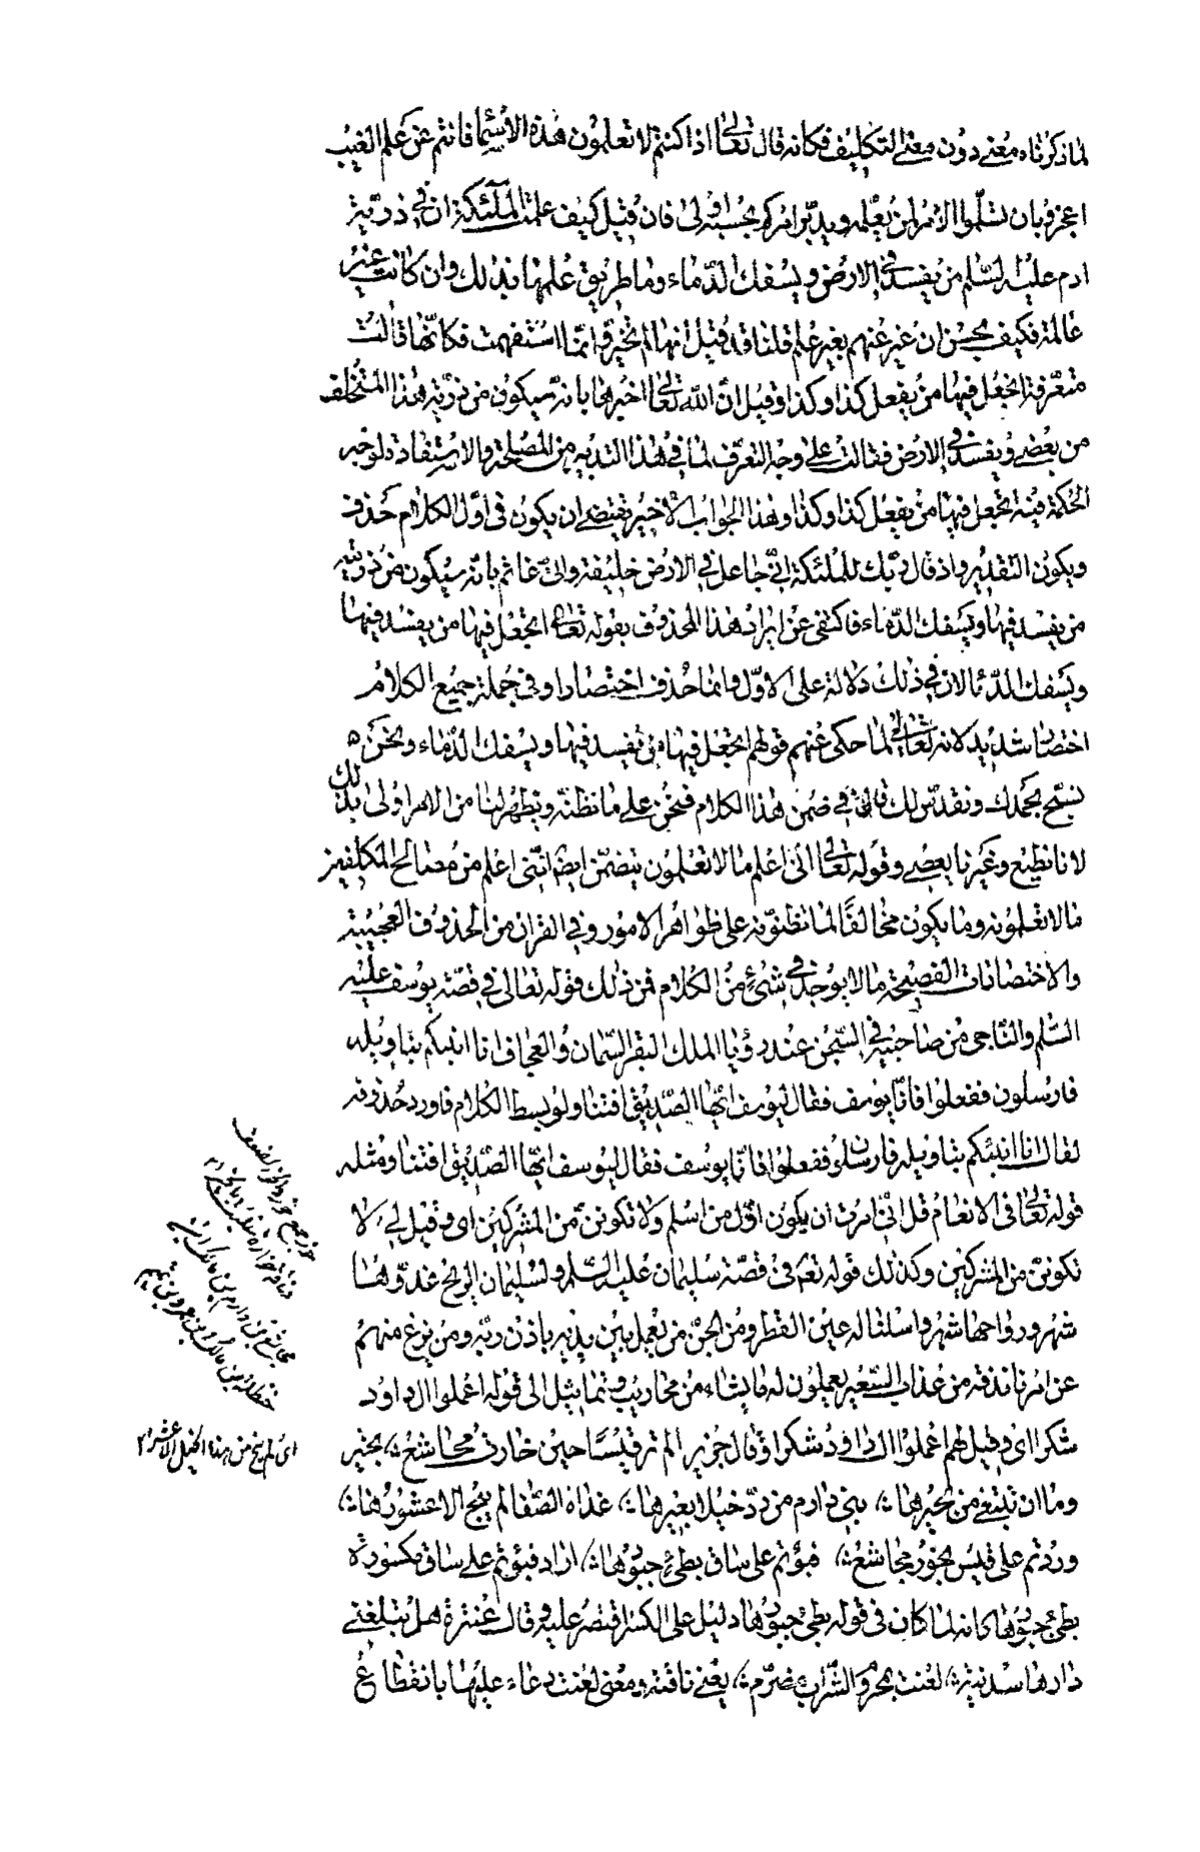 لما ذكرناه معنى دون معنى التكليف فكانه قال تعالى اذا كنتم لا تعلمون هذه الاسماء فانتم عن علم الغيب
اعجز وبان تسلموا الامر لمن يعلمه ويدبر امركم بحسبه اولى فان قيل كيف علمت الملئكة ان في ذرية
ادم عليه السلم من يفسد في الارض ويسفك الدماء وما طريق علمها بذلك وان كانت غير
عالمة فكيف يحسن ان غير عنهم بغير علم قلنا قد قيل انها لم تخبر وانما استفهمت فكانها قالت
متعرفة اتجعل فيها من يفعل كذا وكذا وقيل ان الله تعالى اخبرها بانه سيكون من ذرية هذا المستخلف
من يعصى ويفسد في الارض فقالت على وجه التعرف لما في هذا التدبير من المصلحة والاستفادة لوجه
الحكمة فيه اتجعل فيها من يفعل كذا وكذا وهذا الجواب الاخير يقتضى ان يكون في اول الكلام حذف
ويكون التقدير واذ قال ربك للملئكة اني جاعل في الارض خليفة واني عالم بانه سيكون من ذريته
من يفسد فيها ويسفك الدماء فاكتفى عن ايراد هذا المحذوف بقوله تعالى اتجعل فيها من يفسد فيها
ويسفك الدماء لان في ذلك دلالة على الاول وانما حذف اختصارا وفي جملة جميع الكلام
اختصار شديد لانه تعالى لما حكى عنهم قولهم اتجعل فيها من يفسد فيها ويسفك الدماء ونحن
نسبح بحمدك ونقدس لك قال في ضمن هذا الكلام فنحن على ما نظنه ويظهر لنا من الامر اولى بذلك
لانا نطيع وغيرنا يعصى وقوله تعالى انى اعلم ما لا تعلمون يتضمن ايضا اننى اعلم من مصالح المكلفين
ما لا تعلمونه وما يكون مخالفا لما تظنونه على ظواهر الامور وفي القران من الحذوف العجيبة
والاختصارات الفصيحة ما لا يوجد في شئ من الكلام فمن ذلك قوله تعالى في قصة يوسف عليه
السلم والناجى من صاحبيه في السجن عند رؤيا الملك البقر السمان والعجاف انا انبئكم بتاويله
فارسلون ففعلوا فاتا يوسف فقال ليوسف ايها الصديق افتنا ولو بسط الكلام فاورد محذوفه
لقال انا انبئكم بتاويله فارسلون ففعلوا فاتا يوسف فقال ليوسف ايها الصديق افتنا ومثله
قوله تعالى في الانعام قل انى امرت ان يكون اول من اسلم ولا تكونن من المشركين اى وقيل لي لا
تكونن من المشركين وكذلك قوله تع في قصة سليمان عليه السلم ولسليمان الريح غدوها
شهر ورواحها شهر واسلنا له عين القطر ومن الجن من يعمل بين يديه باذن ربه ومن يزغ منهم
عن امرنا نذقه من عذاب السعير يعملون له ما يشاء من محاريب وتماثيل الى قوله اعملوا ال داود
شكرا اى وقيل لهم اعملوا ال داود شكرا وقال جرير الم تر قيسا حين خارت مجاشع تجير
وما ان تبتغى من يجيرها بنى دارم من رد خيلا بغيرها غداة الصفا لم ينج الا عشورها
وردتم على قيس بخور مجاشع فبؤتم على ساق بطئ جبورها اراد فبؤتم على ساق مكسورة
بطئ جبورها كانه لما كان في قوله بطئ جبورها دليل على الكسر اقتصر عليه وقال عنترة هل تبلغنى
دارها شدنية لعنت بمحروم الشراب مصرم يعنى ناقته ومعنى لعنت دعاء عليها بانقطاع